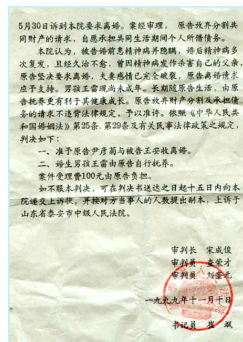 5月30日诉到本院要求离婚。案经审理，原告放弃分割共
同财产的请求，自愿承担共同生活期间个人所借债务。
本院认为，被告婚前患精神病并隐瞒，婚后精神病多
次复发，且经久治不愈，曾因精神病发作杀害自己的父亲，
原告坚决要求离婚，夫妻感情已完全破裂，原告离婚请求
应予支持。男孩王霜现尚未成年，长期随原告生活，由原
告抚养更有利于其健康成长。原告放弃分割及承担债
务的请求不违背法律规定，予以准许。依照《中华人民共
和国婚姻法》第25条、第29条及有关民事法律政策之规定，
判决如下：
一、准予原告尹彦菊与被告王安收离婚。
二、婚生男孩王霜由原告自行抚养。
案件受理费100元由原告负担。
如不服本判决，可在判决书送达之日起十五日内向本
院递交上诉状，并按对方当事人的人数提出副本，上诉于
山东省泰安市中级人民法院。
审判长 宋成俭
审判员 秦荣才
审判员 刘
一九九九年十一月十日
书记员 崔